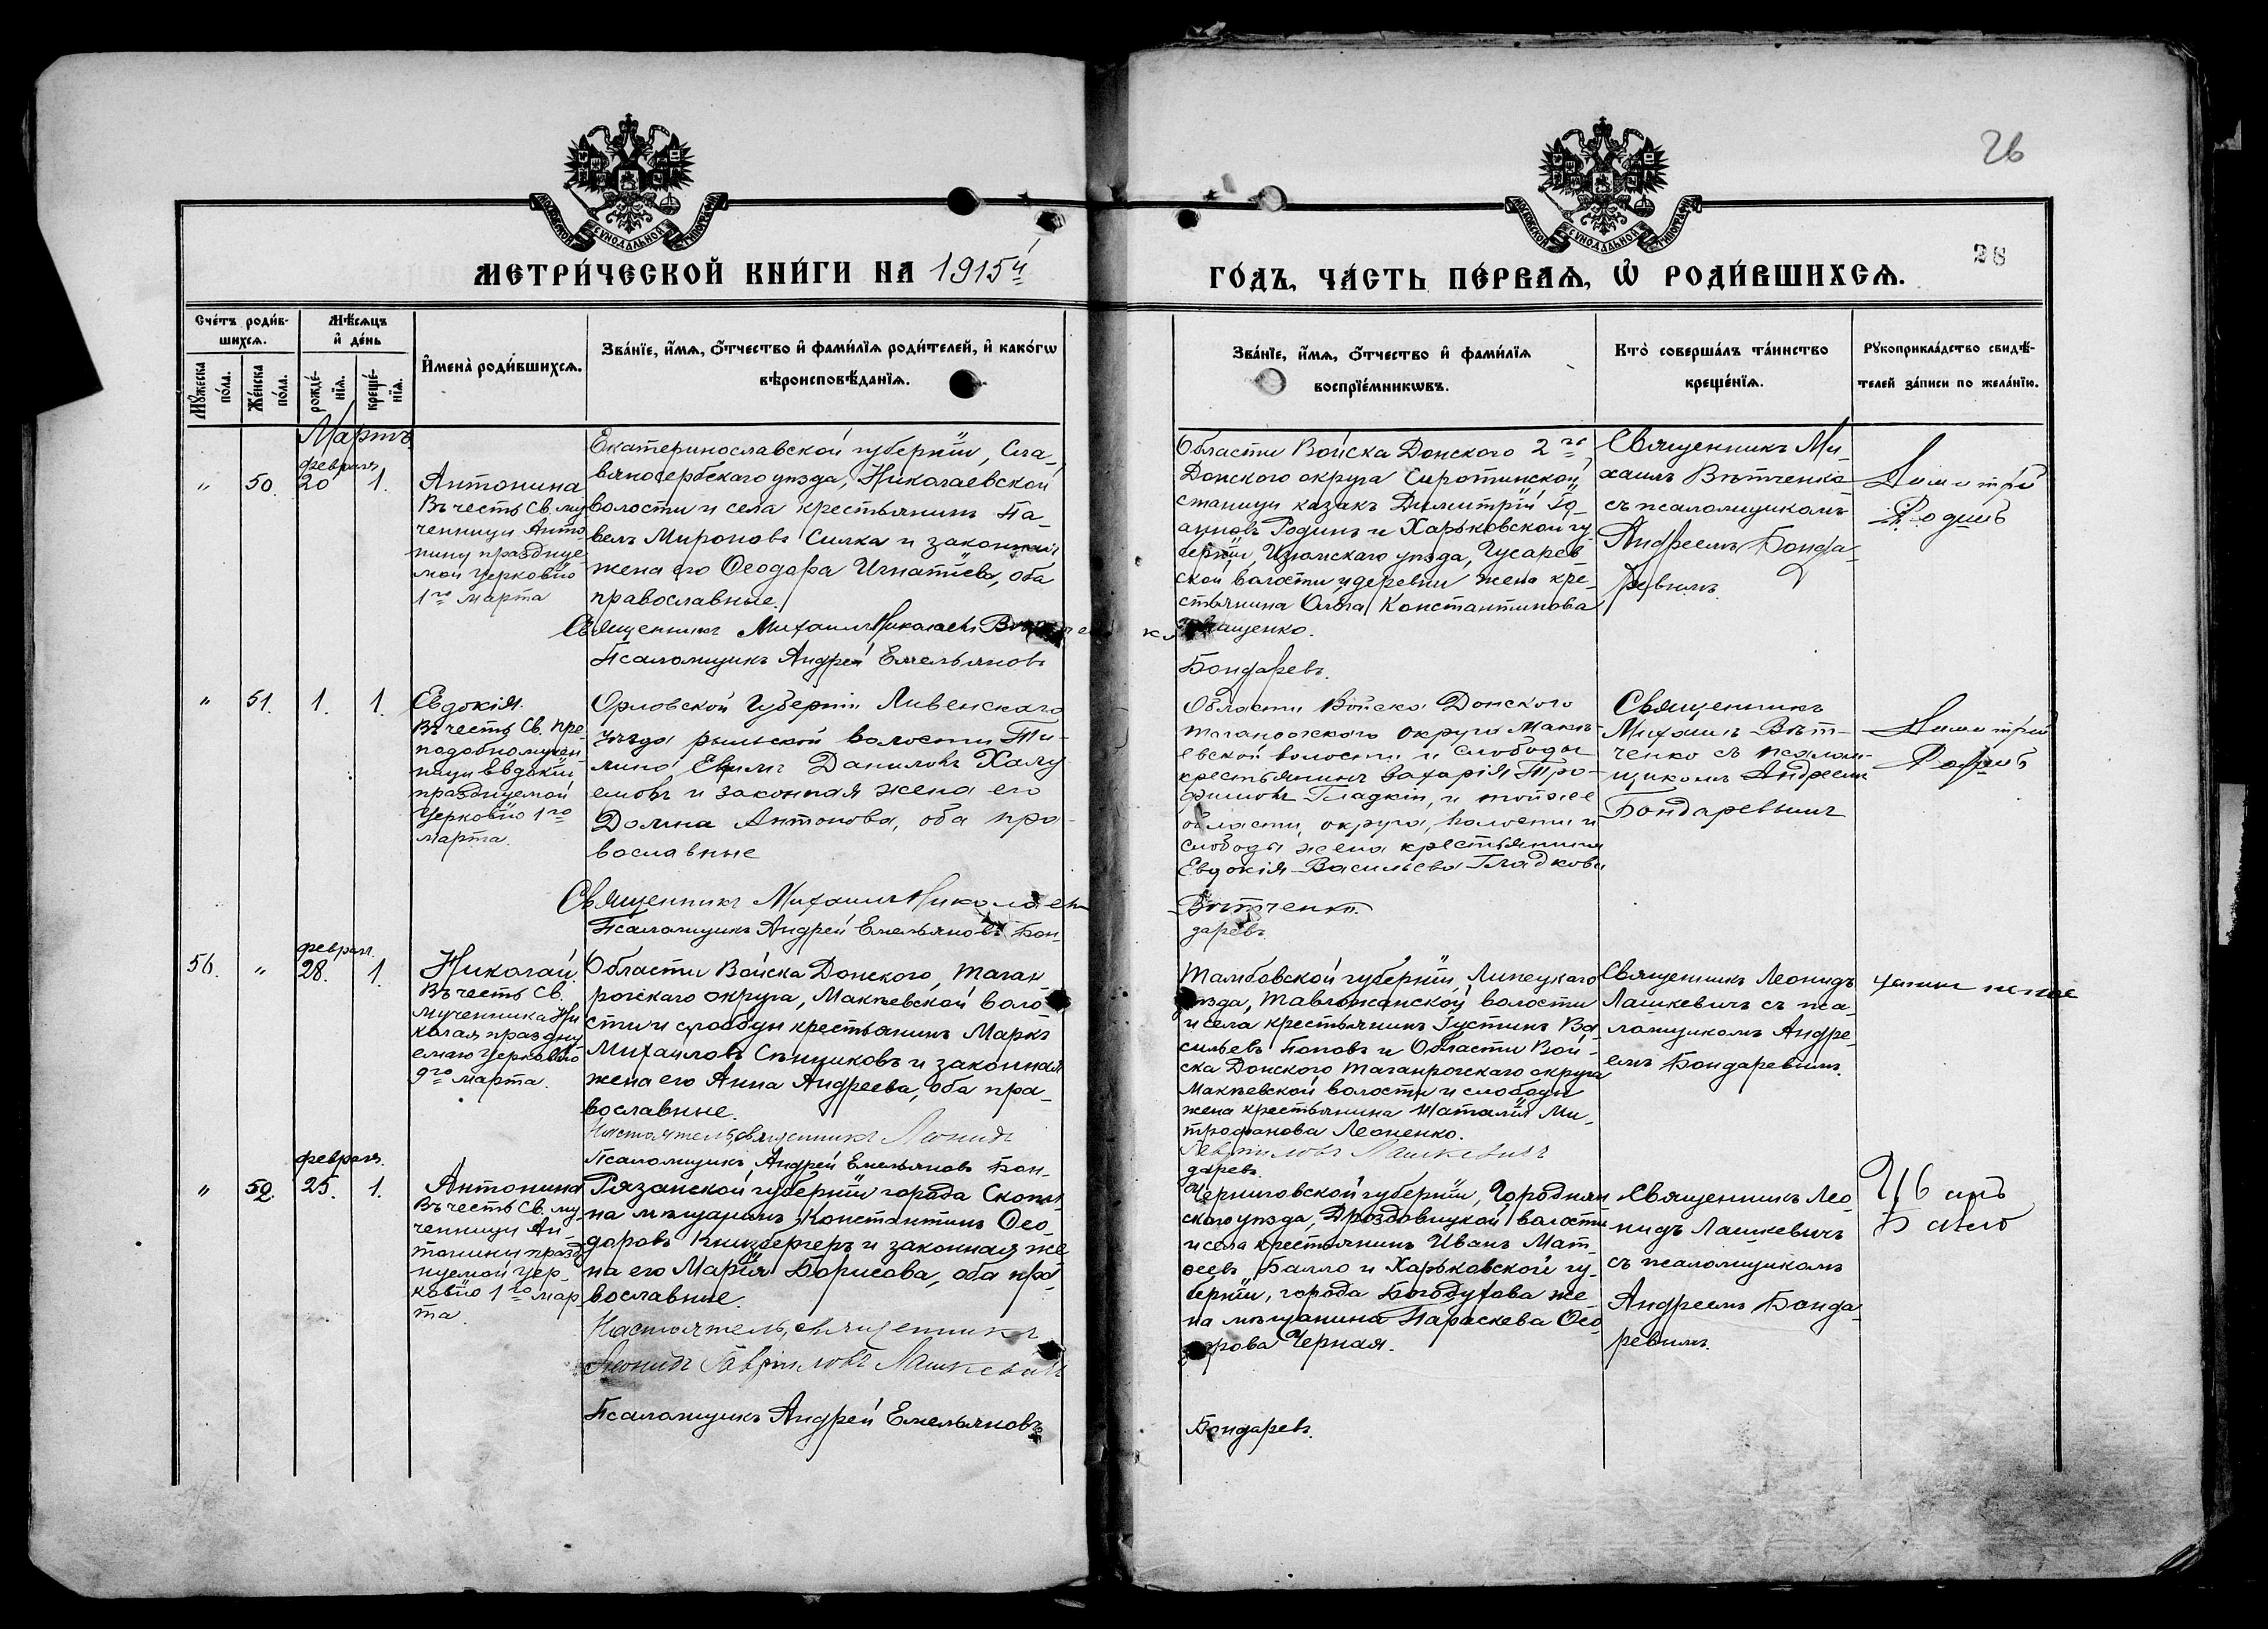 26
28
МОСКОВСКОЙ СѴНОДАЛЬНОЙ ТИПОГРАФІИ
МОСКОВСКОЙ СѴНОДАЛЬНОЙ ТИПОГРАФІИ
МЕТРИ́ЧЕСКОЙ КНИ́ГИ НА 1915й
ГО́ДЪ, ЧА́СТЬ ПЕ́РВАѦ, Ѡ҆ РОДИ́ВШИХСѦ.
Сче́тъ роди́в-
шихсѧ.
Мѣ́сѧцъ
и҆ де́нь
Мꙋ́жеска
по́ла.
Же́нска
по́ла.
рожде́-
нїѧ.
креще́-
нїѧ.
И҆мена̀ роди́вшихсѧ.
Зва́нїе, и҆́мѧ, ѻ҆́тчество и҆ фами́лїѧ роди́телей, и҆ како́гѡ
вѣроисповѣ́данїѧ.
Зва́нїе, и҆́мѧ, ѻ҆́тчество и҆ фами́лїѧ
воспрїе́мникѡвъ.
Кто̀ соверша́лъ та́инство
креще́нїѧ.
Рꙋкоприкла́дство свидѣ́-
телей за́писи по жела́нїю.
Мартъ
февраля
" 50. 20 1.
Антонина
Въ честь Св. му
ченницы Анто
нины праздну
мой церковію
1го марта
Екатеринославской губерніи, Сла-
вяносербскаго уѣзда, Николаевской
волости и села крестьянинъ Па-
велъ Мироновъ Силка и законная
жена его Ѳеодора Игнатіева, оба
православные.
Священникъ Михаилъ Николаевъ
Псаломщикъ Андрей Емельяновъ
Области Войска Донского 2го
Донского округа Сиротинской
станицы казакъ Димитрій Іо-
анновъ Родинъ и Харьковской гу
берніи, Изюмскаго уѣзда, Гусарев
ской волости и деревни жена кре-
стьянина Ольга Константинова
Бондаревъ.
Священникъ Ми-
хаилъ Вѣтченко
съ псаломщикомъ
Андреемъ Бонда-
ревымъ.
Димитрій
Родинъ
" 51. 1. 1.
Евдокія.
Въ честь Св. пре
подобномучен
ницы Евдокіи
празднуемой
Церковію 1го
марта.
Орловской Губерніи Ливенскаго
уѣзда рыльской волости
Даниловъ
и законная жена его
Домна Антонова, оба пра-
вославные
Священникъ Михаилъ Николаевъ
Псаломщикъ Андрей Емельяновъ Бон-
Области Войска Донского
таганрогскаго округа Макѣ-
евской волости и слободы
крестьянинъ Захарія Тро-
фимовъ Гладкін, и той же
области, округа, волости и
слободы жена крестьянина
Евдокія Васильева Гладкова
Вѣтченко.
даревъ.
Священникъ
Михаилъ Вѣт-
ченко съ псалом-
щикомъ Андреемъ
Бондаревымъ
Димитрій
Родинъ
февраля.
56. " 28. 1.
Николай.
Въ честь Св.
мученника Ни
колая праздну
емаго церковію
9го марта.
Области Войска Донского, Таган-
рогскаго округа, Макѣевской воло-
сти и слободы крестьянинъ Маркъ
Михайловъ Сѣнниковъ и законная
жена его Анна Андреева, оба пра-
вославные.
Настоятель, священникъ Леонидъ
Псаломщикъ, Андрей Емельяновъ Бон-
Тамбовской губерніи, Липецкаго
уѣзда, волости
и села крестьянинъ Іустинъ Ва
сильевъ Поповъ и Области Вой-
ска Донского Таганрогскаго округа
Макѣевской волости и слободы
жена крестьянина Наталія Ми-
трофанова Леоненко.
Гавриловъ Лашкевичъ
даревъ.
Священникъ Леонидъ
Лашкевичъ съ пса-
ломщикомъ Андре-
емъ Бондаревымъ.
февраля.
" 52. 25. 1.
Антонина
Въ честь Св. му
ченницы Ан-
тонины празд
нуемой цер-
ковію 1го мар
та.
Рязанской губерніи города Скопи
на мѣщанинъ Константинъ Ѳео
доровъ и законная же
на его Марія Борисова, оба пра
вославные.
Настоятель, священникъ
Леонидъ Гавриловъ Лашкевичъ
Псаломщикъ Андрей Емельяновъ
Черниговской губерніи, Городнян
скаго уѣзда, Дроздовицкой волости
и села крестьянинъ Иванъ Мат-
ѳеевъ Балло и Харьковской гу-
берніи, города Богодухова же
на мѣщанина Параскева Ѳео
дорова Черная.
Бондаревъ.
Священникъ Лео
нидъ Лашкевичъ
съ псаломщикомъ
Андреемъ Бонда-
ревымъ.